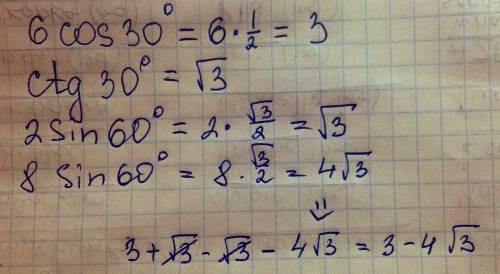 6 cos 30° = 6 · 1/2 = 3
ctg 30° = √3
2 sin 60° = 2 · √3/2 = √3
8 sin 60° = 8 · √3/2 = 4√3
⇓
3 + √3 - √3 - 4√3 = 3 - 4√3